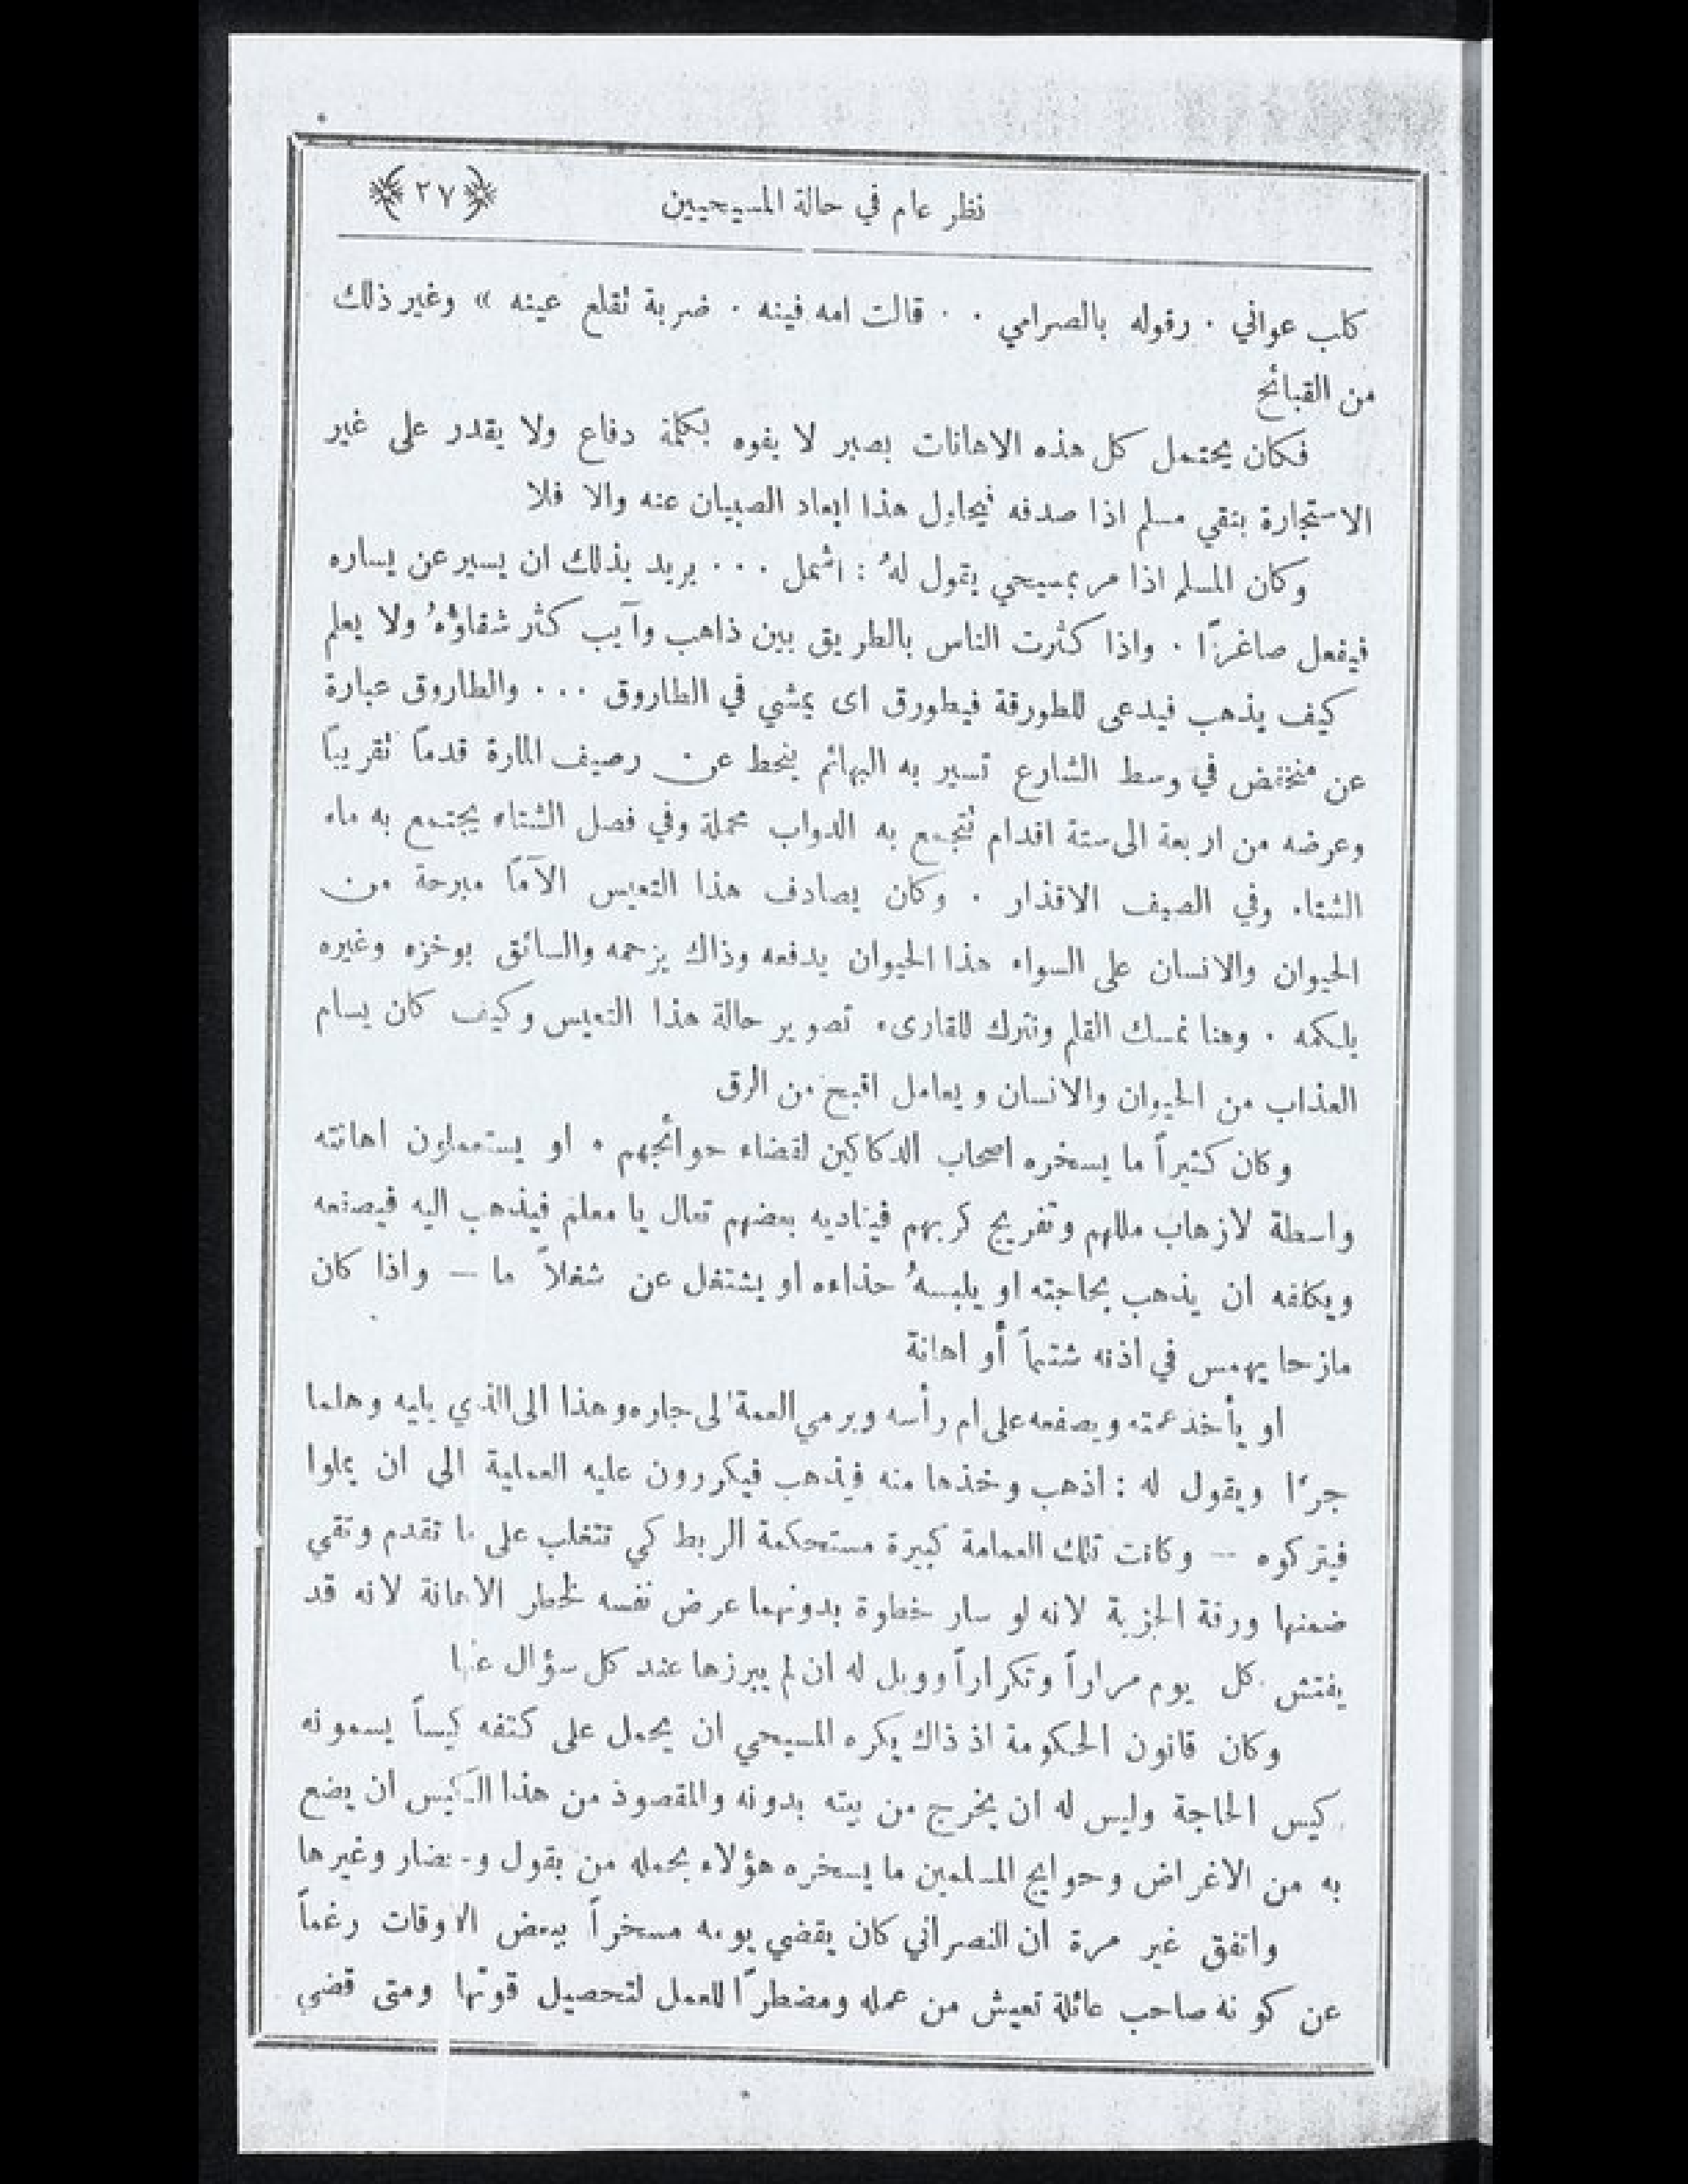 نظر عام في حالة المسيحيين ﴿٢٧﴾
كلب عواني . رقوله بالصرامي . . قالت امه فينه . ضربة تقلع عينه » وغير ذلك
من القبائح
فكان يحتمل كل هذه الاهانات بصبر لا يفوه بكلمة دفاع ولا يقدر على غير
الاستجارة بتقي مسلم اذا صدفه فيحاول هذا ابعاد الصبيان عنه والا فلا
وكان المسلم اذا مر بمسيحي يقول لهُ : اشمل . . . يريد بذلك ان يسير عن يساره
فيفعل صاغرًا . واذا كثرت الناس بالطريق بين ذاهب وآيب كثر شقاؤهُ ولا يعلم
كيف يذهب فيدعى للطورقة فيطورق اى يمشي في الطاروق . . . والطاروق عبارة
عن منخفض في وسط الشارع تسير به البهائم ينحط عن رصيف المارة قدماً تقريباً
وعرضه من اربعة الى ستة اقدام تتجمع به الدواب محملة وفي فصل الشتاء يجتمع به ماء
الشتاء وفي الصيف الاقذار . وكان يصادف هذا التعيس الآماً مبرحة من
الحيوان والانسان على السواء هذا الحيوان يدفعه وذاك يزحمه والسائق بوخزه وغيره
يلكمه . وهنا نمسك القلم ونترك للقارىء تصوير حالة هذا التعيس وكيف كان يسام
العذاب من الحيوان والانسان ويعامل اقبح من الرق
وكان كثيراً ما يسخره اصحاب الدكاكين لقضاء حوائجهم . او يستعملون اهانته
واسطة لازهاب مللهم وتفريج كربهم فيناديه بعضهم تعال يا معلم فيذهب اليه فيصفعه
ويكلفه ان يذهب بحاجته او يلبسهُ حذاءه او يشتغل عن شغلاً ما — واذا كان
مازحا يهمس في اذنه شتماً أو اهانة
او يأخذ عمته ويصفعه على ام رأسه ويرمي العمة الى جاره وهذا الى الذي يليه وهلما
جرًا ويقول له : اذهب وخذها منه فيذهب فيكررون عليه العملية الى ان يملوا
فيتركوه — وكانت تلك العمامة كبيرة مستحكمة الربط كي تتغلب على ما تقدم وتقي
ضمنها ورقة الجزية لانه لو سار خطوة بدونهما عرض نفسه لخطر الاهانة لانه قد
يفتش كل يوم مراراً وتكراراً وويل له ان لم يبرزها عند كل سؤال عنها
وكان قانون الحكومة اذ ذاك يكره المسيحي ان يحمل على كتفه كيساً يسمونه
كيس الحاجة وليس له ان يخرج من بيته بدونه والمقصوذ من هذا الكيس ان يضع
به من الاغراض وحوايج المسلمين ما يسخره هؤلاء بحمله من بقول وخضار وغيرها
واتفق غير مرة ان النصراني كان يقضي يومه مسخراً ببعض الاوقات رغماً
عن كونه صاحب عائلة تعيش من عمله ومضطرًا للعمل لتحصيل قوتها ومتى قضي